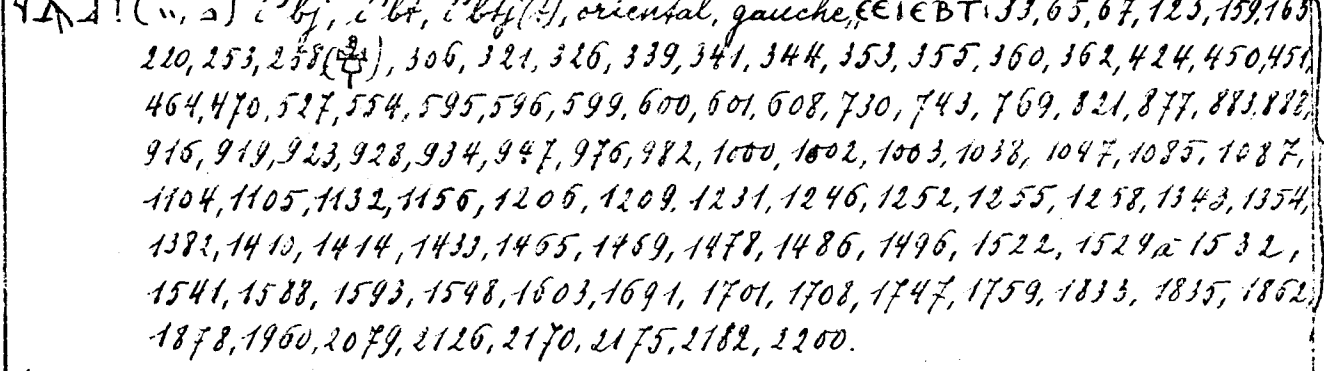 i'bj, i'bt, i'btj(t), oriental, gauche, ⲉⲓⲉⲃⲧ: 33, 65, 67, 123, 159, 163
220, 253, 258( ), 306, 321, 326, 339, 341, 344, 353, 355, 360, 362, 424, 450, 451,
464, 470, 527, 554, 595, 596, 599, 600, 601, 608, 730, 743, 769, 821, 877, 883, 888,
916, 919, 923, 928, 934, 947, 976, 982, 1000, 1002, 1003, 1038, 1047, 1085, 1087,
1104, 1105, 1132, 1156, 1206, 1209, 1231, 1246, 1252, 1255, 1258, 1343, 1354,
1382, 1410, 1414, 1433, 1465, 1469, 1478, 1486, 1496, 1522, 1524 à 1532,
1541, 1588, 1593, 1598, 1603, 1691, 1701, 1708, 1747, 1759, 1833, 1835, 1862,
1878, 1960, 2079, 2126, 2170, 2175, 2182, 2200.